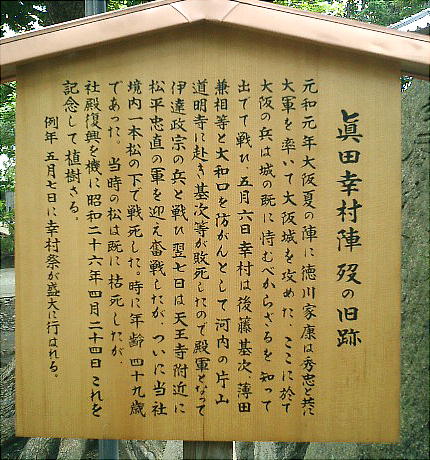 眞田幸村陣歿の旧跡
元和元年大阪夏の陣に徳川家康は秀忠と共に
大軍を率いて大阪城を攻めた、ここに於て
大阪の兵は城の既に恃むべからざるを知って
出でて戦ひ五月六日幸村は後藤基次、薄田
兼相等と大和口を防がんとして河内の片山
道明寺に赴き基次等が敗死したので殿軍となって
伊達政宗の兵と戦ひ翌七日は天王寺附近に
松平忠直の軍を迎え奮戦したが、ついに当社
境内一本松の下で戦死した。時に年齢四十九歳
であった。当時の松は既に枯死したが、
社殿復興を機に昭和二十六年四月二十四日これを
記念して植樹さる。
例年五月七日に幸村祭が盛大に行はれる。